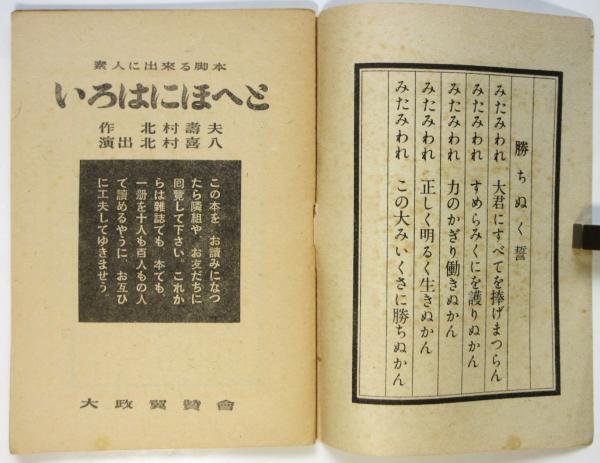 勝ちぬく誓
みたみわれ 大君にすべてを捧げまつらん
みたみわれ すめらみくにを護りぬかん
みたみわれ 力のかぎり働きぬかん
みたみわれ 正しく明るく生きぬかん
みたみわれ この大みいくさに勝ちぬかん
素人に出來る脚本
いろはにほへと
作 北村壽夫
演出 北村喜八
この本を、お讀みになつ
たら隣組や、お友だちに
囘覽して下さい。これか
らは雜誌でも、本でも、
一册を十人も百人もの人
で讀めるやうに、お互ひ
に工夫してゆきませう。
大政翼贊會